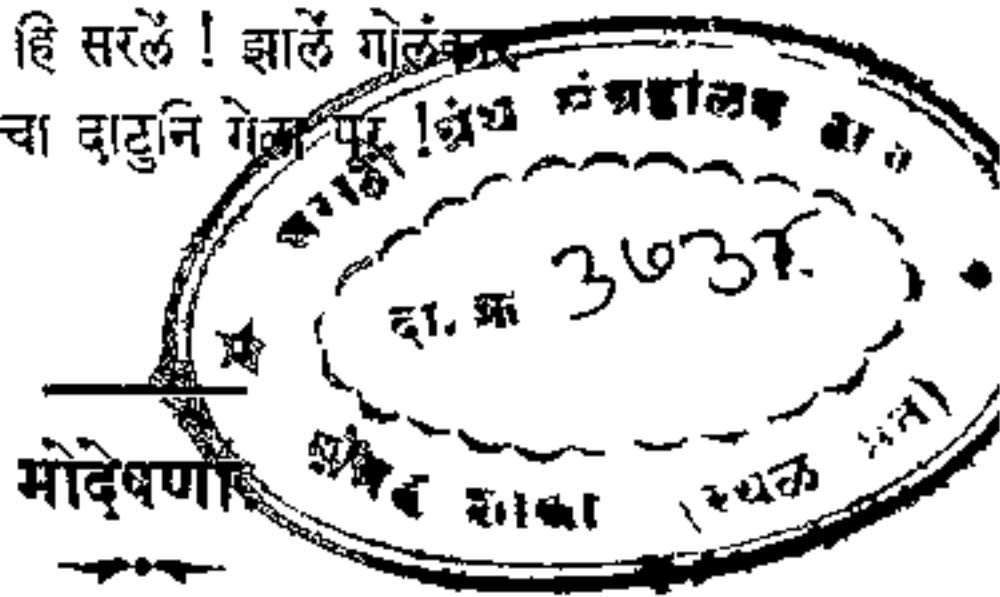 हि सरलें ! झालें गोलंकार
चा दाटुनि गेला पूर !
मराठी ग्रंथ संग्रहालय ठाणें
दा. क्र ३७३१
शाखा (स्थळ प्रत)